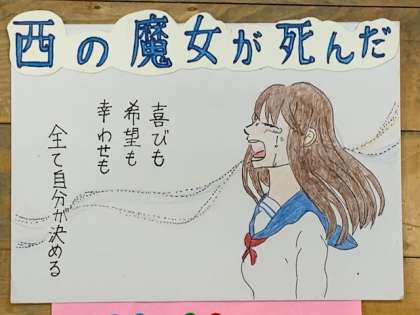 西の魔女が死んだ
喜びも
希望も
幸わせも
全て自分が決める